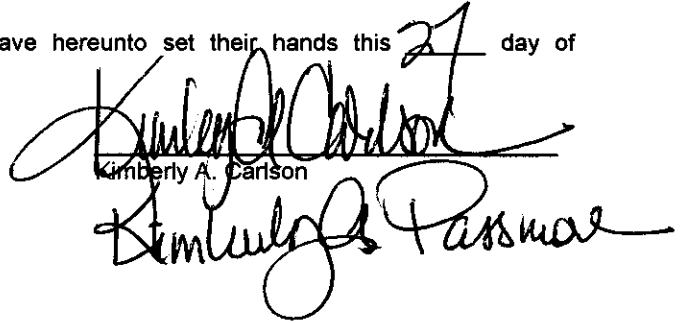 ave hereunto set their hands this 27 day of
Kimberly A Carlson
Kimberly A. Carlson
Kimberly A Passmore